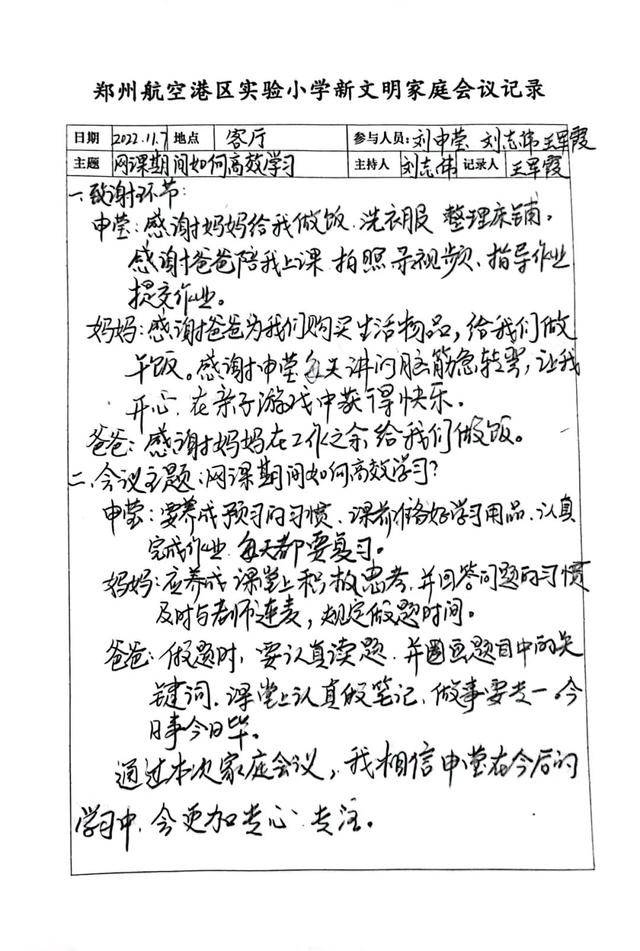 郑州航空港区实验小学新文明家庭会议记录
日期 2022.11.7 地点 客厅 参与人员: 刘申莹 刘志伟 王军霞
主题 网课期间如何高效学习 主持人 刘志伟 记录人 王军霞
一、致谢环节:
申莹:感谢妈妈给我做饭、洗衣服 整理床铺。
感谢爸爸陪我上课、拍照录视频、指导作业
提交作业。
妈妈:感谢爸爸为我们购买生活物品,给我们做
午饭。感谢申莹每天讲的脑筋急转弯,让我
开心、在亲子游戏中获得快乐。
爸爸:感谢妈妈在工作之余给我们做饭。
二、会议主题:网课期间如何高效学习?
申莹:要养成预习的习惯、课前准备好学习用品、认真
完成作业、每天都要复习。
妈妈:应养成课堂上积极思考、并回答问题的习惯
及时与老师连麦,规定做题时间。
爸爸:做题时,要认真读题、并圈画题目中的关
键词、课堂上认真做笔记、做事要专一。今
日事今日毕。
通过本次家庭会议,我相信申莹在今后的
学习中、会更加专心、专注。